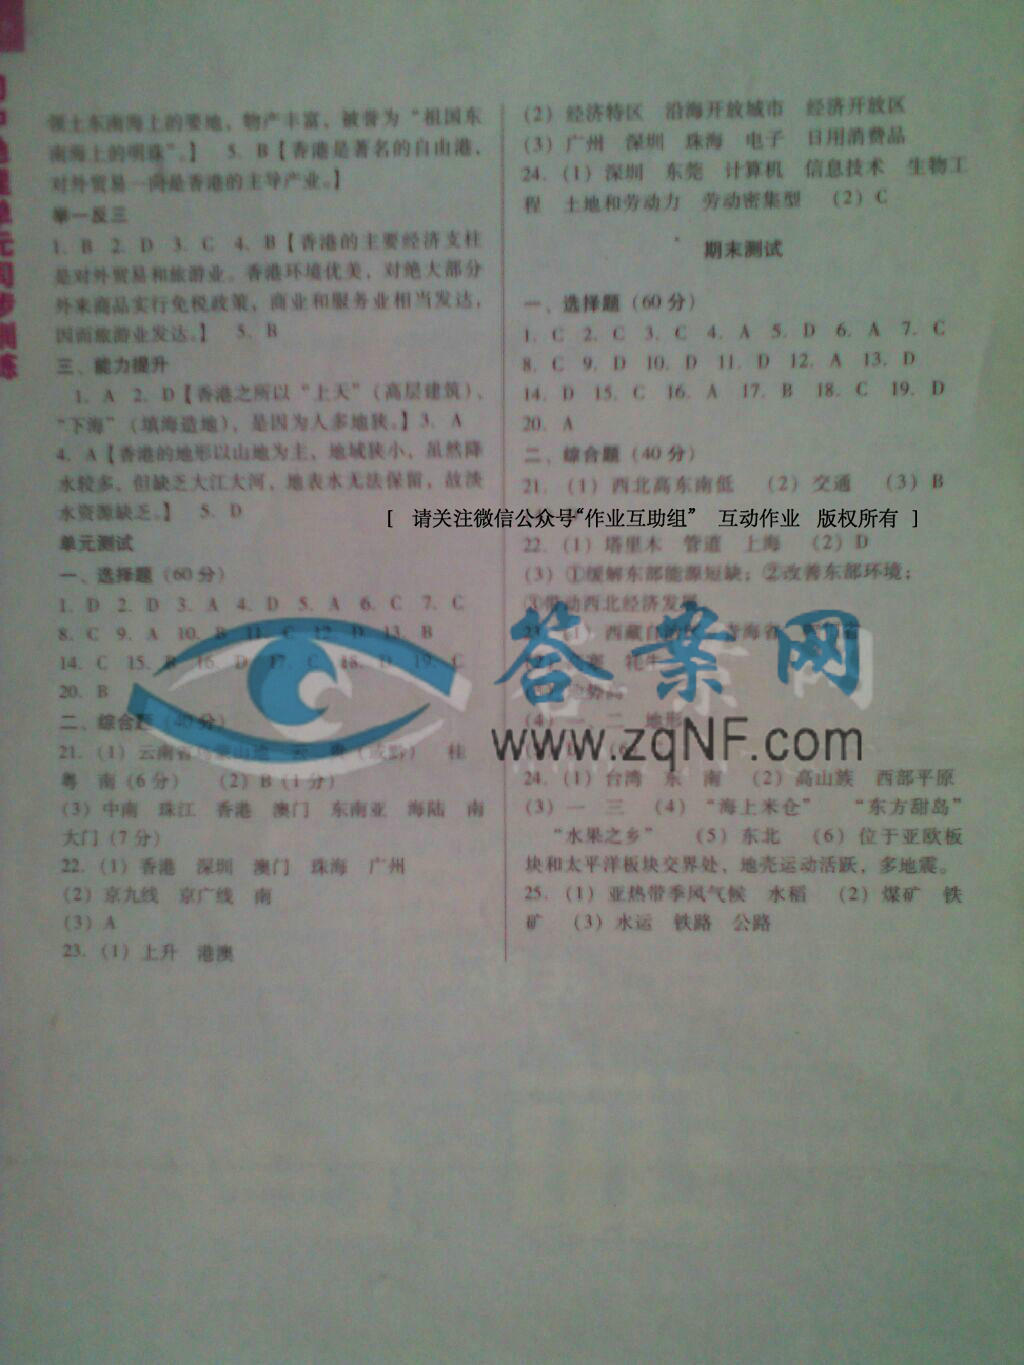 初中地理单元同步训练
领土东南海上的要地，物产丰富，被誉为“祖国东
南海上的明珠”。】 5. B【香港是著名的自由港，
对外贸易一向是香港的主导产业。】
举一反三
1. B 2. D 3. C 4. B【香港的主要经济支柱
是对外贸易和旅游业。香港环境优美，对绝大部分
外来商品实行免税政策，商业和服务业相当发达，
因而旅游业发达。】 5. B
三、能力提升
1. A 2. D【香港之所以“上天”（高层建筑）、
“下海”（填海造地），是因为人多地狭。】3. A
4. A【香港的地形以山地为主，地域狭小，虽然降
水较多，但缺乏大江大河，地表水无法保留，故淡
水资源缺乏。】 5. D
单元测试
一、选择题（60分）
1. D 2. D 3. A 4. D 5. A 6. C 7. C
8. C 9. A 10. B 11. C 12. D 13. B
14. C 15. B 16. D 17. C 18. D 19. C
20. B
二、综合题（40分）
21.（1）云南省乌蒙山地 云 贵（或黔） 桂
粤 南（6分） （2）B（1分）
（3）中南 珠江 香港 澳门 东南亚 海陆 南
大门（7分）
22.（1）香港 深圳 澳门 珠海 广州
（2）京九线 京广线 南
（3）A
23.（1）上升 港澳
（2）经济特区 沿海开放城市 经济开放区
（3）广州 深圳 珠海 电子 日用消费品
24.（1）深圳 东莞 计算机 信息技术 生物工
程 土地和劳动力 劳动密集型 （2）C
期末测试
一、选择题（60分）
1. C 2. C 3. C 4. A 5. D 6. A 7. C
8. C 9. D 10. D 11. D 12. A 13. D
14. D 15. C 16. A 17. B 18. C 19. D
20. A
二、综合题（40分）
21.（1）西北高东南低 （2）交通 （3）B
[ 请关注微信公众号“作业互助组” 互动作业 版权所有 ]
22.（1）塔里木 管道 上海 （2）D
（3）①缓解东部能源短缺；②改善东部环境；
③带动西北经济发展
23.（1）西藏自治区 青海省
（2）高寒 牦牛
（3）地势高
（4）一、二 地形
答案网
www.zqNF.com
24.（1）台湾 东 南 （2）高山族 西部平原
（3）一 三 （4）“海上米仓” “东方甜岛”
“水果之乡” （5）东北 （6）位于亚欧板
块和太平洋板块交界处，地壳运动活跃，多地震。
25.（1）亚热带季风气候 水稻 （2）煤矿 铁
矿 （3）水运 铁路 公路